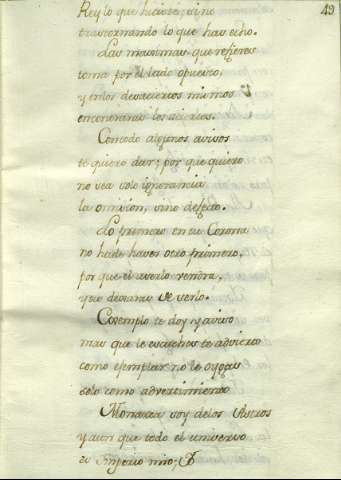 49
Rey lo que hiciste, sino
trastornando lo que has echo.
Las maximas que refieres
toma por el lado opuesto,
y en los desaciertos mismos
encontraras los aciertos.
Con todo algunos avisos
te quiero dar; por que quiero
no sea solo ignorancia
la omision, sino defecto.
Lo primero en tu Corona
no ha de haver otro primero,
por que el averlo vendra,
y eso
de verlo.
Exemplo te doy y aviso
mas que le escuches te advierto
como exemplar no le oygas
solo como advertimiento
Monarca soy de los Astros
y aun que todo el universo
es Imperio mio,